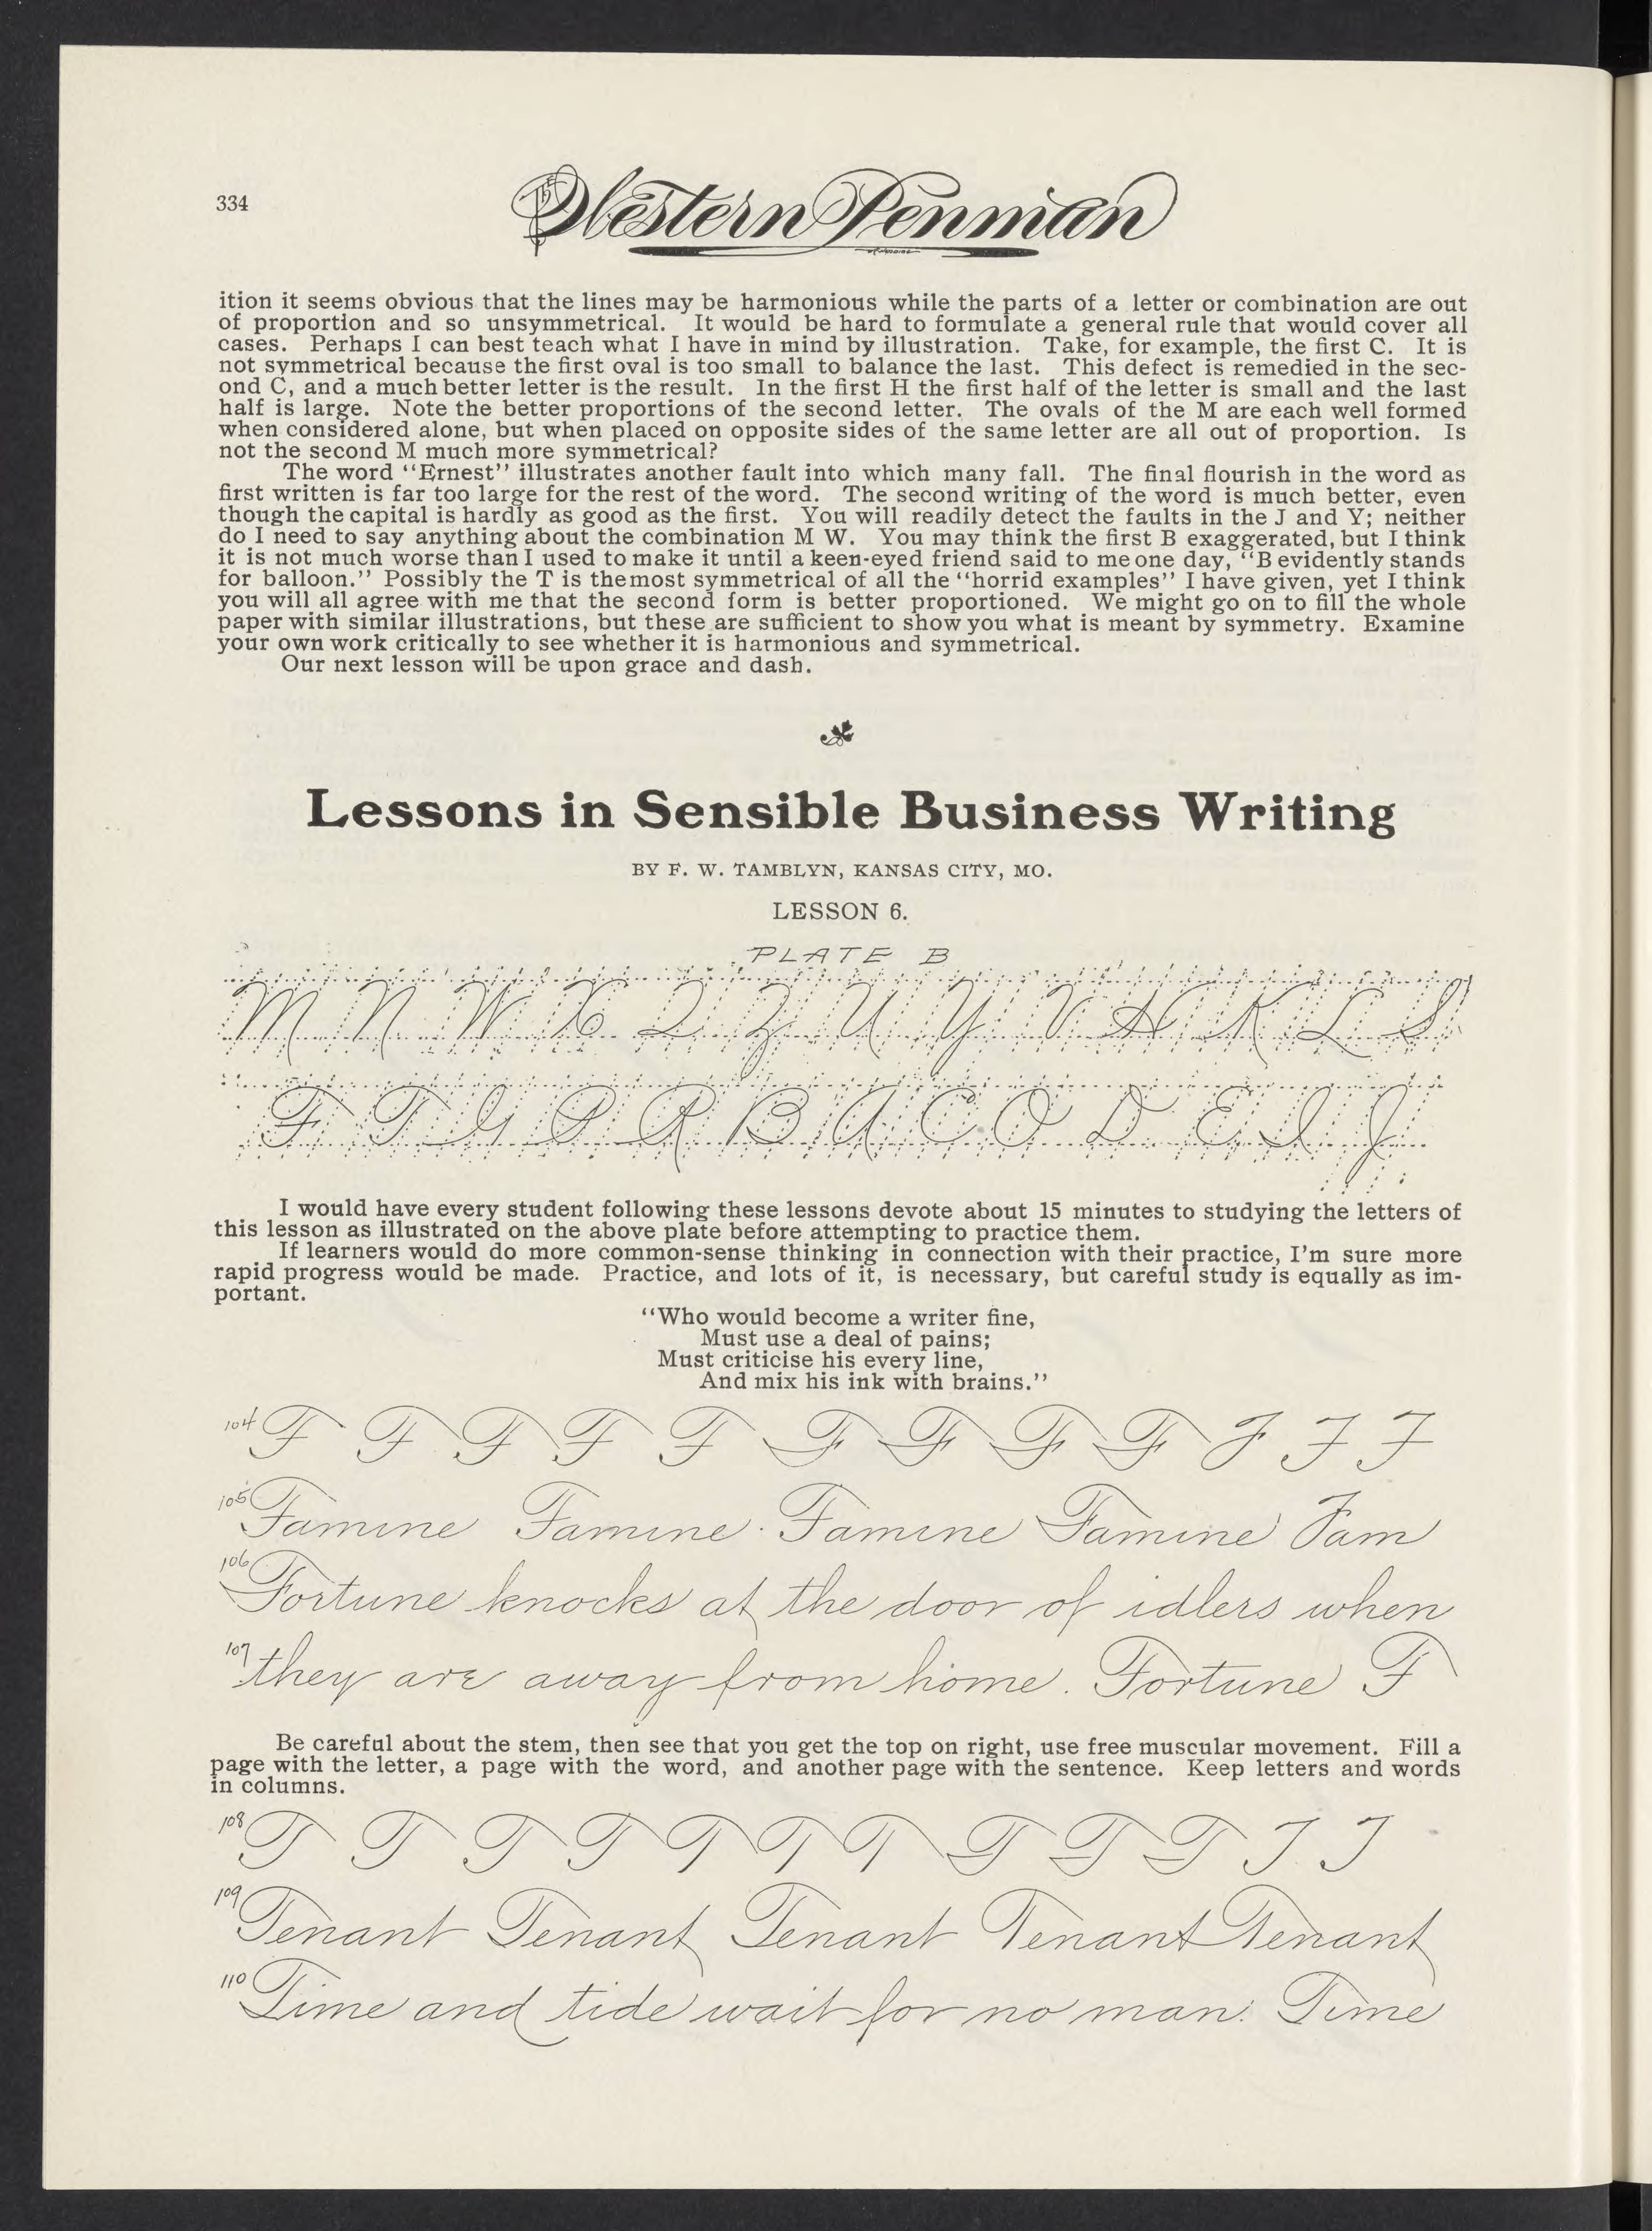 334
The Western Penman
ition it seems obvious that the lines may be harmonious while the parts of a letter or combination are out
of proportion and so unsymmetrical. It would be hard to formulate a general rule that would cover all
cases. Perhaps I can best teach what I have in mind by illustration. Take, for example, the first C. It is
not symmetrical because the first oval is too small to balance the last. This defect is remedied in the sec-
ond C, and a much better letter is the result. In the first H the first half of the letter is small and the last
half is large. Note the better proportions of the second letter. The ovals of the M are each well formed
when considered alone, but when placed on opposite sides of the same letter are all out of proportion. Is
not the second M much more symmetrical?
The word "Ernest" illustrates another fault into which many fall. The final flourish in the word as
first written is far too large for the rest of the word. The second writing of the word is much better, even
though the capital is hardly as good as the first. You will readily detect the faults in the J and Y; neither
do I need to say anything about the combination M W. You may think the first B exaggerated, but I think
it is not much worse than I used to make it until a keen-eyed friend said to me one day, "B evidently stands
for balloon." Possibly the T is the most symmetrical of all the "horrid examples" I have given, yet I think
you will all agree with me that the second form is better proportioned. We might go on to fill the whole
paper with similar illustrations, but these are sufficient to show you what is meant by symmetry. Examine
your own work critically to see whether it is harmonious and symmetrical.
Our next lesson will be upon grace and dash.
Lessons in Sensible Business Writing
BY F. W. TAMBLYN, KANSAS CITY, MO.
LESSON 6.
PLATE B
M N W X Q Z U Y V H K L S
F T G P R B A C O D E I J
I would have every student following these lessons devote about 15 minutes to studying the letters of
this lesson as illustrated on the above plate before attempting to practice them.
If learners would do more common-sense thinking in connection with their practice, I'm sure more
rapid progress would be made. Practice, and lots of it, is necessary, but careful study is equally as im-
portant.
"Who would become a writer fine,
Must use a deal of pains;
Must criticise his every line,
And mix his ink with brains."
104 F F F F F F F F F F F F
105 Famine Famine Famine Famine Fam
106 Fortune knocks at the door of idlers when
107 they are away from home. Fortune F
Be careful about the stem, then see that you get the top on right, use free muscular movement. Fill a
page with the letter, a page with the word, and another page with the sentence. Keep letters and words
in columns.
108 T T T T T T T T T T T T
109 Tenant Tenant Tenant Tenant Tenant
110 Time and tide wait for no man. Time